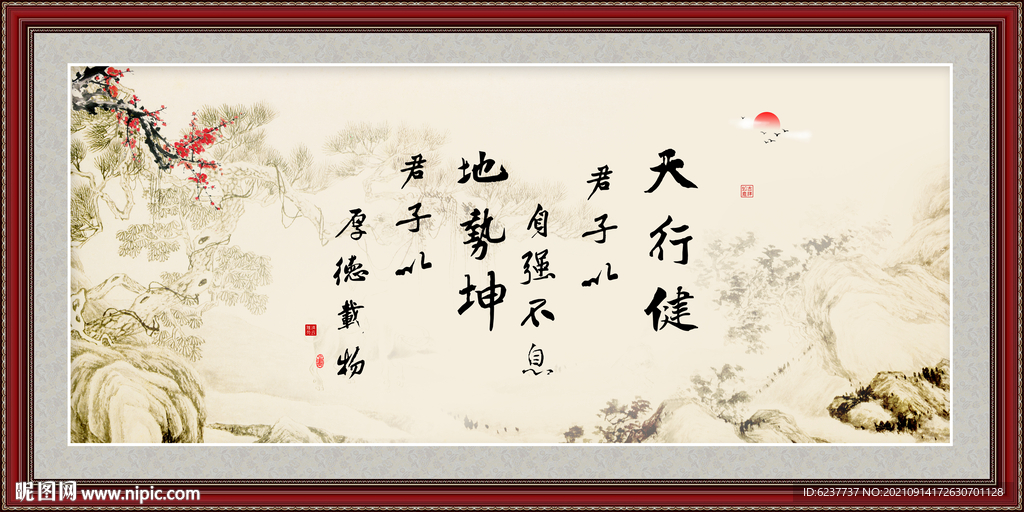 天行健
君子以
自强不息
地勢坤
君子以
厚德載物
昵图网 www.nipic.com
ID:6237737 NO:20210914172630701128